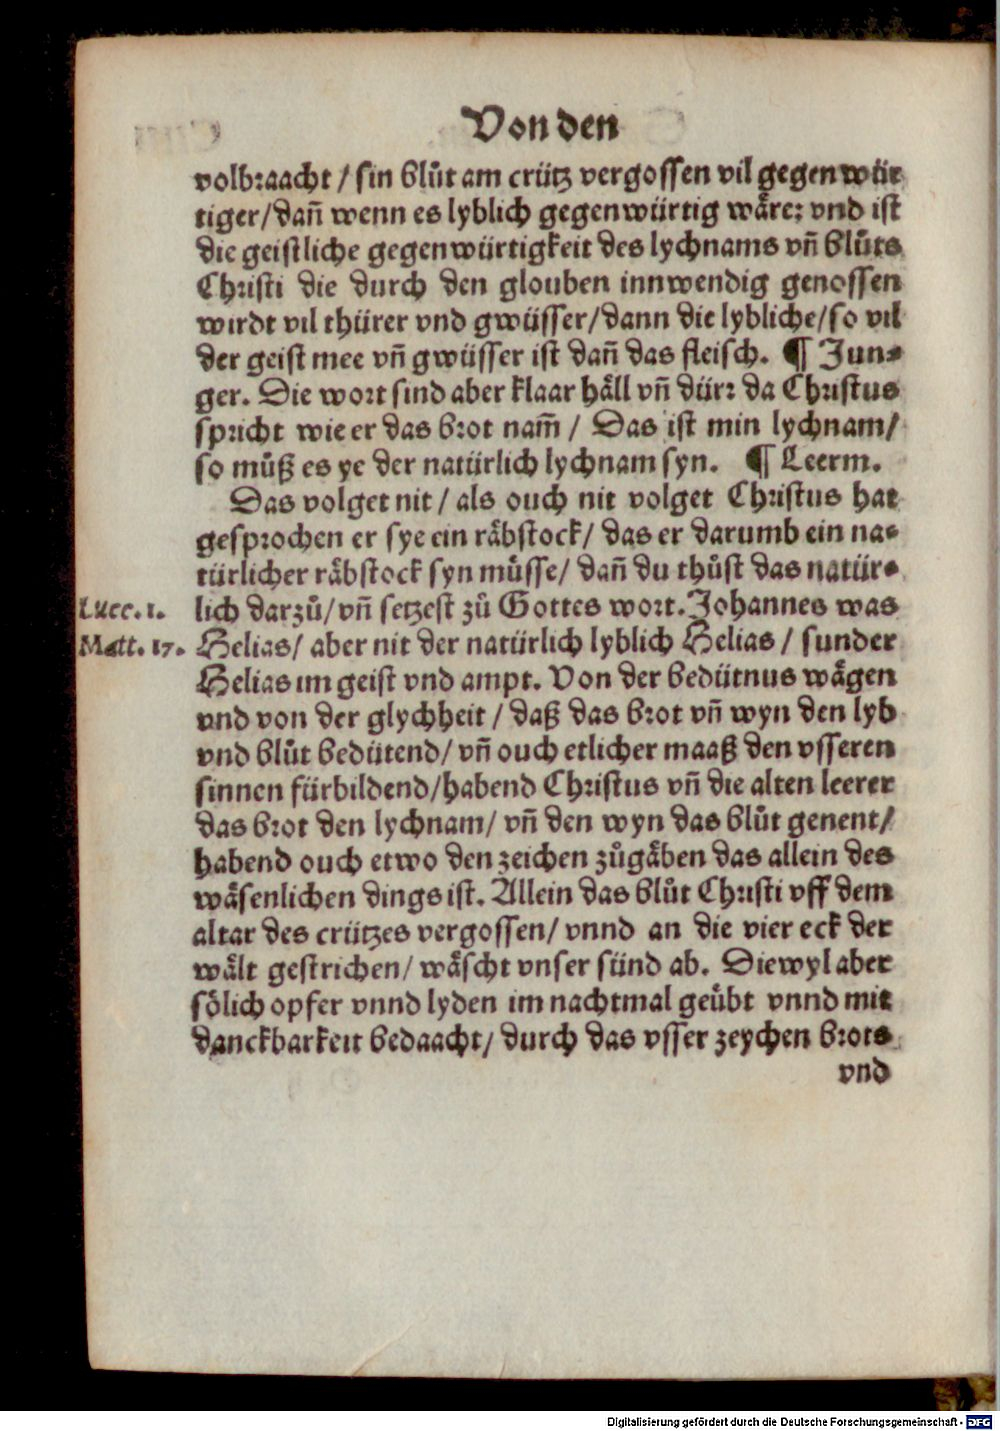 Von den
volbraacht / sin blůt am crütz vergossen vil gegenwür
tiger/dañ wenn es lyblich gegenwürtig wåre: vnd ist
die geistliche gegenwürtigkeit des lychnams vñ blůts
Christi die durch den glouben innwendig genossen
wirdt vil thürer vnd gwüsser/dann die lybliche/so vil
der geist mee vñ gwüsser ist dañ das fleisch. ¶ Jun⸗
ger. Die wort sind aber klaar håll vñ dürr da Christus
spricht wie er das brot nam̃ / Das ist min lychnam/
so můß es ye der natürlich lychnam syn. ¶ Leerm.
Das volget nit / als ouch nit volget Christus hat
gesprochen er sye ein råbstock/ das er darumb ein na⸗
türlicher råbstock syn můsse/ dañ du thůst das natür⸗
Lucc. 1. lich darzů/vñ setzest zů Gottes wort. Johannes was
Matt. 17. Helias/ aber nit der natürlich lyblich Helias / sunder
Helias im geist vnd ampt. Von der bedütnus wågen
vnd von der glychheit / daß das brot vñ wyn den lyb
vnd blůt bedütend/ vñ ouch etlicher maaß den vsseren
sinnen fürbildend/habend Christus vñ die alten leerer
das brot den lychnam/ vñ den wyn das blůt genent/
habend ouch etwo den zeichen zůgåben das allein des
wåsenlichen dings ist. Allein das blůt Christi vff dem
altar des crützes vergossen/ vnnd an die vier eck der
wålt gestrichen/ wåscht vnser sünd ab. Diewyl aber
sölich opfer vnnd lyden im nachtmal geübt vnnd mit
danckbarkeit bedaacht/ durch das vsser zeychen brots
vnd
Digitalisierung gefördert durch die Deutsche Forschungsgemeinschaft - DFG